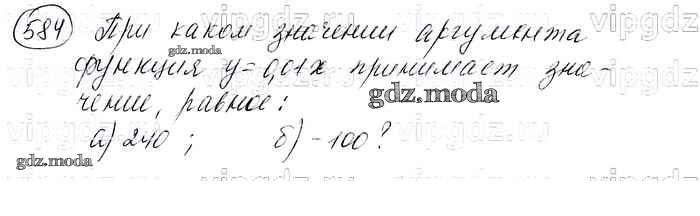 584 При каком значении аргумента
gdz.moda
функция y=0,01x принимает зна-
gdz.moda
чение, равное:
а) 240 ; б) -100?
gdz.moda